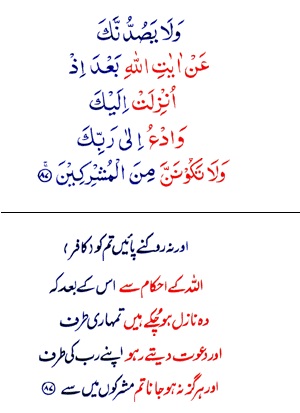 وَلَا يَصُدُّنَّكَ
عَنْ اٰيٰتِ اللّٰهِ بَعْدَ اِذْ
اُنْزِلَتْ اِلَيْكَ
وَادْعُ اِلٰى رَبِّكَ
وَلَا تَكُوْنَنَّ مِنَ الْمُشْرِكِيْنَ ﴿۸۷﴾
اور نہ روکنے پائیں تم کو (کافر)
اللہ کے احکام سے اس کے بعد کہ
وہ نازل ہوچکے ہیں تمہاری طرف
اور دعوت دیتے رہو اپنے رب کی طرف
اور ہرگز نہ ہو جانا تم مشرکوں میں سے ﴿۸۷﴾